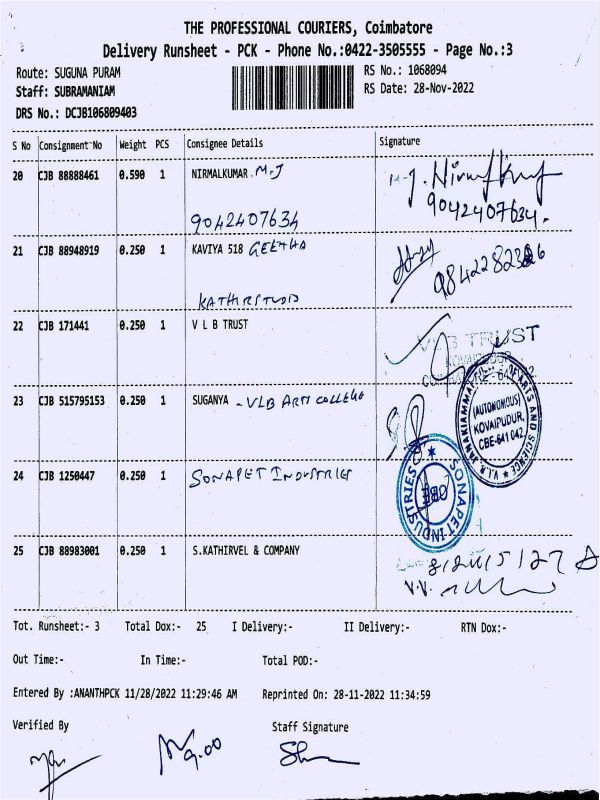 THE PROFESSIONAL COURIERS, Coimbatore
Delivery Runsheet - PCK - Phone No.:0422-3505555 - Page No.:3
Route: SUGUNA PURAM
RS No.: 1068094
Staff: SUBRAMANIAM
RS Date: 28-Nov-2022
DRS No.: DCJB106809403
S No Consignment No Weight PCS Consignee Details Signature
20 CJB 88888461 0.590 1 NIRMALKUMAR. M.J
9042407634
9042407634.
21 CJB 88948919 0.250 1 KAVIYA 518 GEETHA
22 CJB 171441 0.250 1 V L B TRUST
VLB TRUST
KOVAIPUDUR
23 CJB 515795153 0.250 1 SUGANYA - VLB ARTS COLLEGE
V.L.B. JANAKIAMMAL ARTS AND SCIENCE
(AUTONOMOUS)
KOVAIPUDUR,
CBE-641 042
24 CJB 1250447 0.250 1 SONAPET INDUSTRIES
SONAPET INDUSTRIES
CBE
25 CJB 88983001 0.250 1 S.KATHIRVEL & COMPANY
Tot. Runsheet:- 3 Total Dox:- 25 I Delivery:- II Delivery:- RTN Dox:-
Out Time:- In Time:- Total POD:-
Entered By :ANANTHPCK 11/28/2022 11:29:46 AM Reprinted On: 28-11-2022 11:34:59
Verified By Staff Signature
9.00